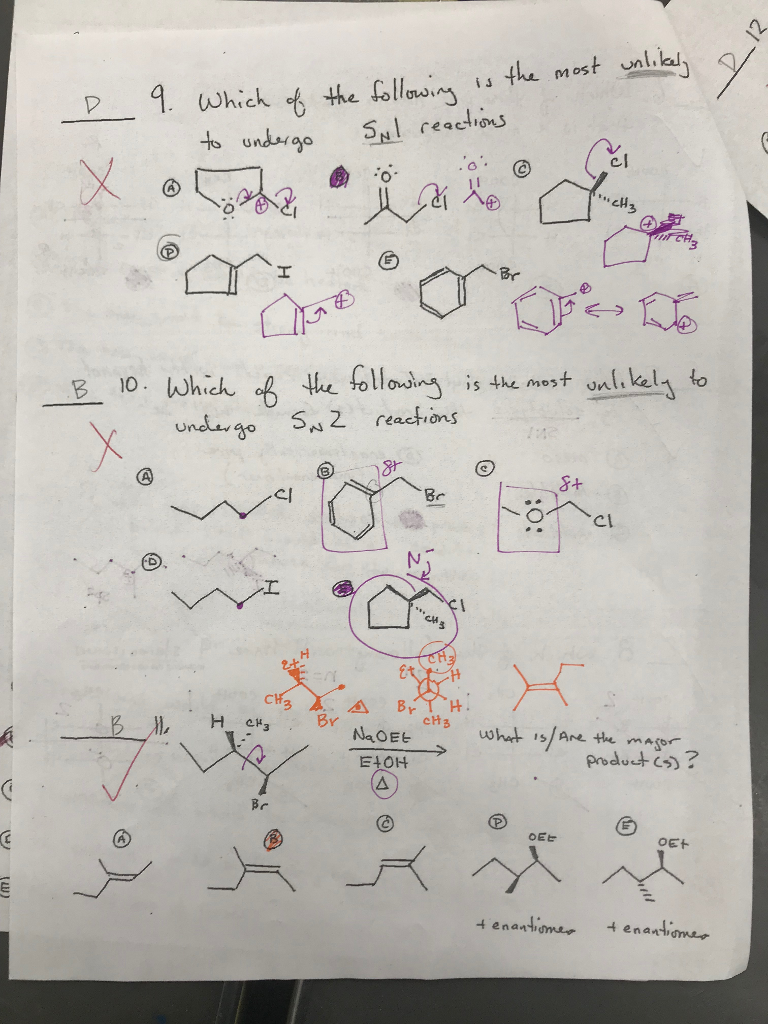 D 12
D 9. Which of the following is the most unlikely
to undergo SN1 reactions
X
A O + Cl
B O Cl O +
C Cl CH3
+ CH3
D I +
E Br + +
B 10. Which of the following is the most unlikely to
undergo SN2 reactions
X
A Cl
B δ+ Br
C O δ+ Cl
D I
N- Cl CH3
Et H CH3 Br
CH3 Et H Br H CH3
B 11. H CH3 Br
NaOEt
EtOH
Δ
What is/Are the major
product(s)?
A B C D E
OEt OEt
+ enantiomer + enantiomer